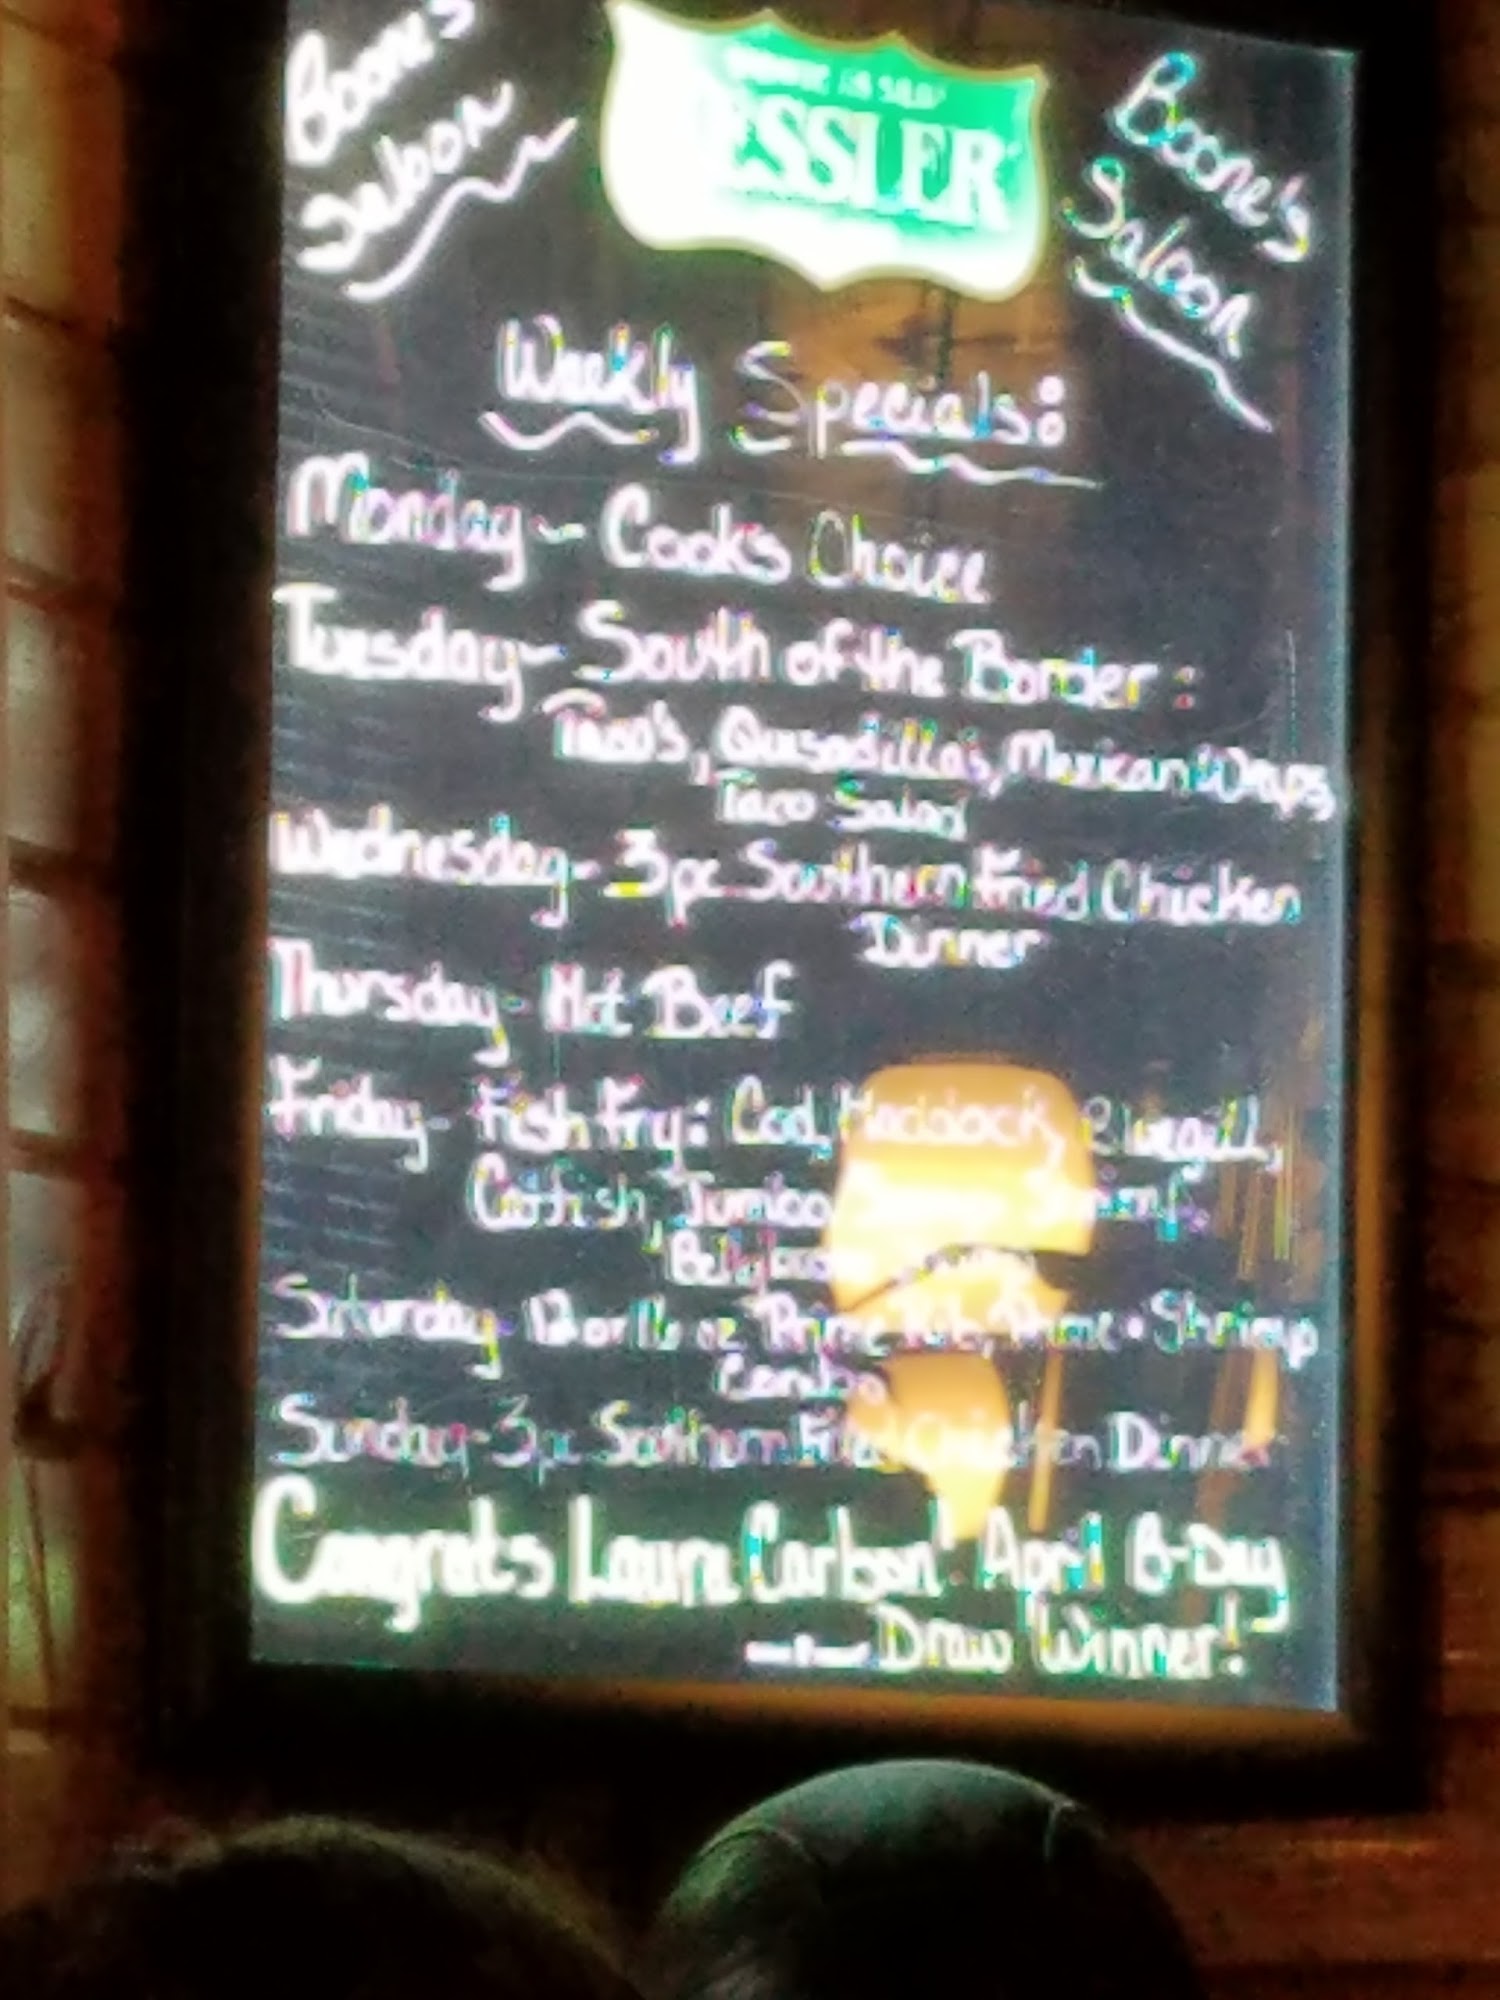 Boone's
Saloon
ESSLER
Boone's
Saloon
Weekly Specials:
Monday- Cooks Choice
Tuesday- South of the Border:
Taco's, Quesadilla's, Mexican Wraps,
Taco Salad
Wednesday- 3pc Southern Fried Chicken
Dinner
Thursday- Hot Beef
Friday- Fish Fry: Cod, Haddock, Bluegill,
Catfish, Jumbo Shrimp,
Saturday- 12 or 16 oz Prime Rib, Prime + Shrimp
Combo
Sunday- 3pc Southern Fried Chicken Dinner
Congrats April B-Day
Draw Winner!